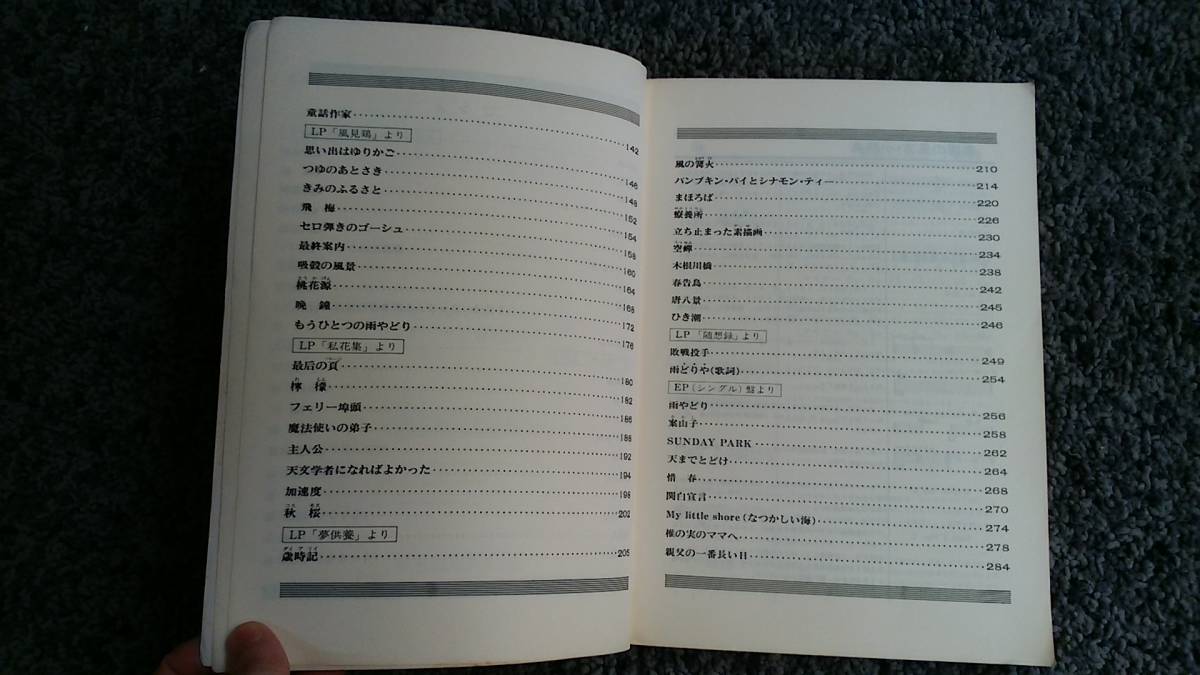 童話作家……142
LP「風見鶏」より
思い出はゆりかご……146
つゆのあとさき……149
きみのふるさと……152
飛 梅……154
セロ弾きのゴーシュ……158
最終案内……160
吸殻の風景……164
桃花源……168
晩 鐘……172
もうひとつの雨やどり……176
LP「私花集」より
最后の頁……180
檸 檬……182
フェリー埠頭……186
魔法使いの弟子……188
主人公……192
天文学者になればよかった……194
加速度……198
秋 桜……202
LP「夢供養」より
歳時記……205
風の篝火……210
パンプキン・パイとシナモン・ティー……214
まほろば……220
療養所……226
立ち止まった素描画……230
空蟬……234
木根川橋……238
春告鳥……242
唐八景……245
ひき潮……246
LP「随想録」より
敗戦投手……249
雨どりや(歌詞)……254
EP(シングル)盤より
雨やどり……256
案山子……258
SUNDAY PARK……262
天までとどけ……264
惜 春……268
関白宣言……270
My little shore(なつかしい海)……274
椎の実のママへ……278
親父の一番長い日……284